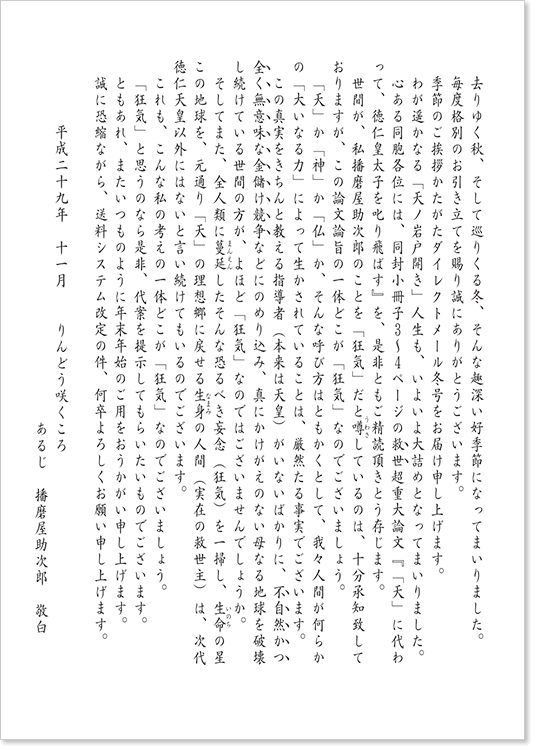 去りゆく秋、そして巡りくる冬、そんな趣深い好季節になってまいりました。
毎度格別のお引き立てを賜り誠にありがとうございます。
季節のご挨拶かたがたダイレクトメール冬号をお届け申し上げます。
わが遥かなる「天ノ岩戸開き」人生も、いよいよ大詰めとなってまいりました。
心ある同胞各位には、同封小冊子3〜4ページの救世超重大論文『「天」に代わ
って、徳仁皇太子を叱り飛ばす』を、是非ともご精読頂きとう存じます。
世間が、私播磨屋助次郎のことを「狂気」だと噂うわさしているのは、十分承知致して
おりますが、この論文論旨の一体どこが「狂気」なのでございましょう。
「天」か「神」か「仏」か、そんな呼び方はともかくとして、我々人間が何らか
の「大いなる力」によって生かされていることは、厳然たる事実でございます。
この真実をきちんと教える指導者（本来は天皇）がいないばかりに、不自然かつ
全く無意味な金儲け競争などにのめり込み、真にかけがえのない母なる地球を破壊
し続けている世間の方が、よほど「狂気」なのではございませんでしょうか。
そしてまた、全人類に蔓延まんえんしたそんな恐るべき妄念（狂気）を一掃し、生命いのちの星
この地球を、元通り「天」の理想郷に戻せる生身なまみの人間（実在の救世主）は、次代
徳仁天皇以外にはないと言い続けてもいるのでございます。
これも、こんな私の考えの一体どこが「狂気」なのでございましょう。
「狂気」と思うのなら是非、代案を提示してもらいたいものでございます。
ともあれ、またいつものように年末年始のご用をおうかがい申し上げます。
誠に恐縮ながら、送料システム改定の件、何卒よろしくお願い申し上げます。
平成二十九年　十一月　りんどう咲くころ
あるじ　播磨屋助次郎　敬白